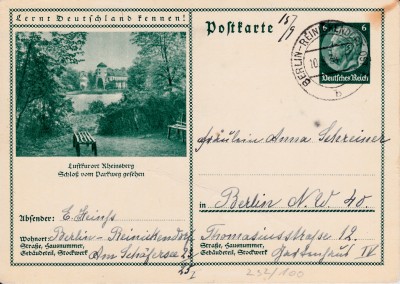 Lernt Deutschland kennen!
Luftkurort Rheinsberg
Schloß vom Parkweg gesehen
Absender: E. Heinß
Wohnort: Berlin-Reinickendorf
Straße, Hausnummer, Am Schäfersee
Gebäudeteil, Stockwerk
Postkarte
15/9
6 6
Deutsches Reich
BERLIN-REINICKENDORF
10
b
Fräulein Anna Schreiner
in Berlin N.W. 40.
Thomasiusstraße 12.
Straße, Hausnummer,
Gebäudeteil, Stockwerk Gartenhaus IV
232/100